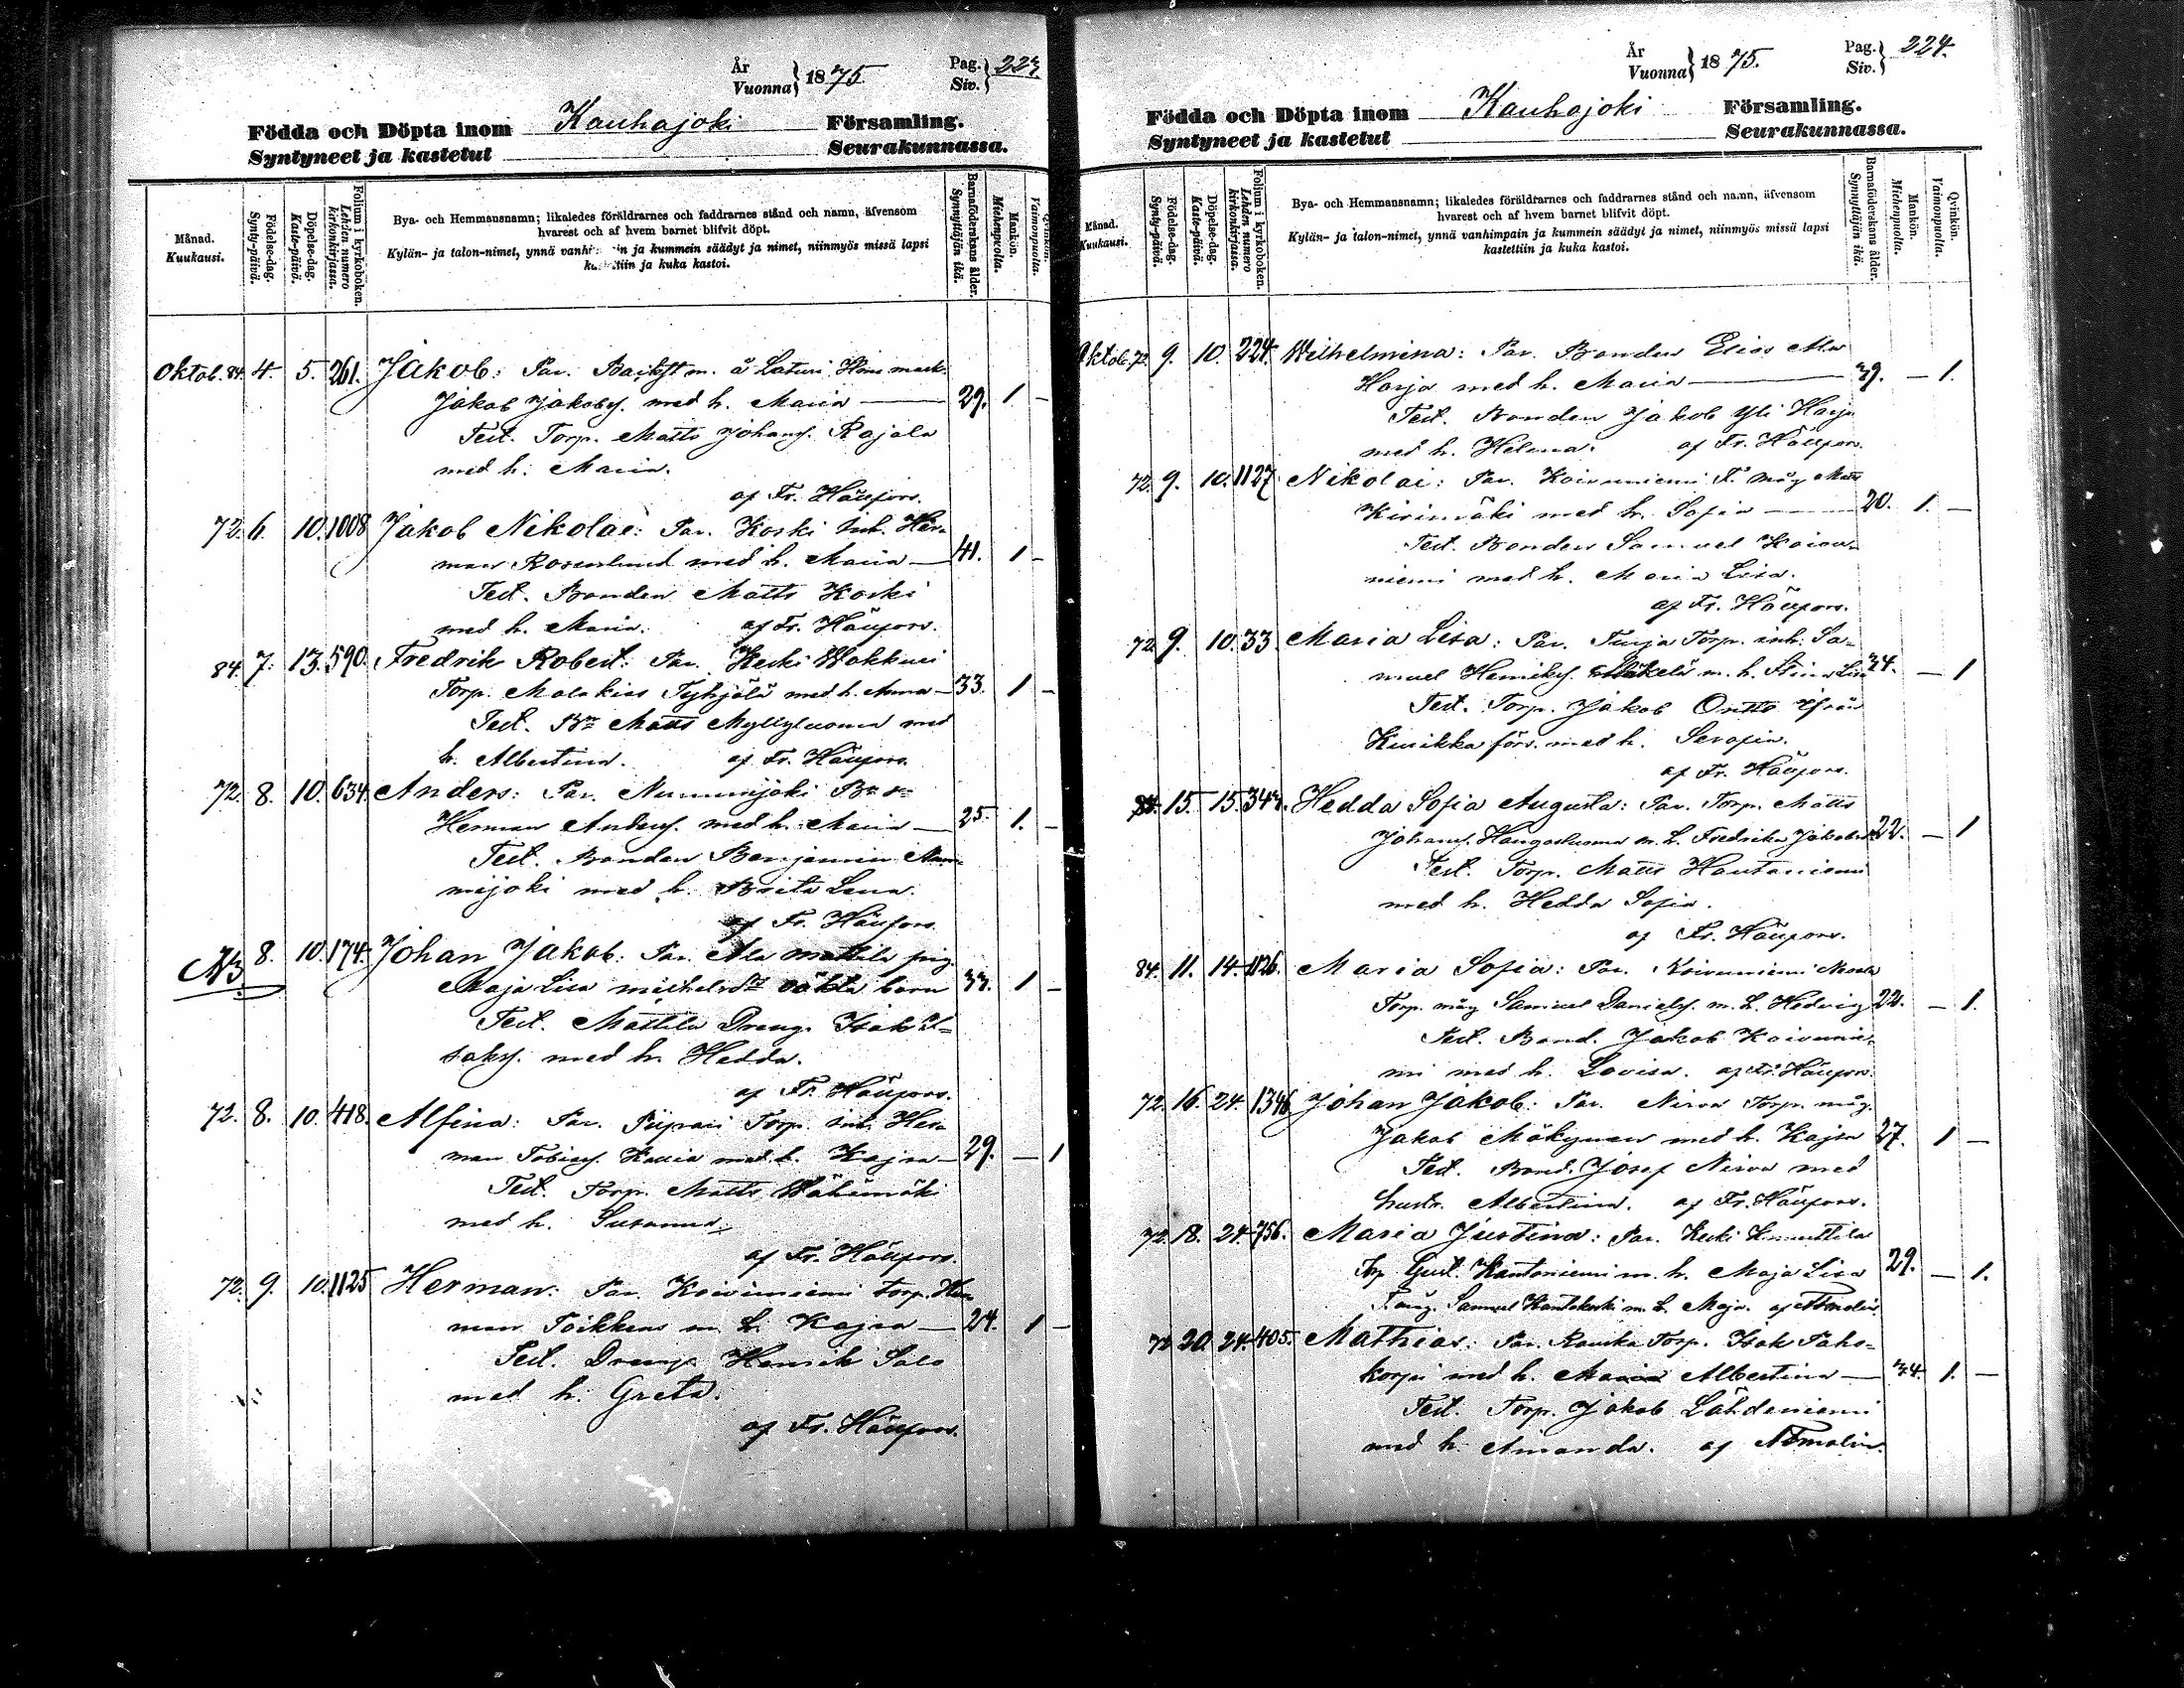 År
Vuonna } 1875. Pag. Siv. } 223
Födda och Döpta inom Kauhajoki Församling.
Syntyneet ja kastetut Seurakunnassa.
Månad. Kuukausi.
Födelse-dag. Synty-päivä.
Döpelse-dag. Kaste-päivä.
Folium i kyrkoboken. Lehden numero kirkonkirjassa.
Bya- och Hemmansnamn; likaledes föräldrarnes och faddrarnes stånd och namn, äfvensom
hvarest och af hvem barnet blifvit döpt.
Kylän- ja talon-nimet, ynnä vanhi in ja kummein säädyt ja nimet, niinmyös missä lapsi
ka tiin ja kuka kastoi.
Barnaföderskans ålder. Synnyttäjän ikä.
Mankön. Miehenpuolta.
Qvinkön. Vaimonpuolta.
Oktob. 84. 4. 5. 261. Jakob: Par. å Laturi
Jakob Jakobs. med h. Maria — 29. 1. -
Test. Torp. Matts Johans. Rajala
med h. Maria.
af Fr. Häufors.
72. 6. 10. 1008 Jakob Nikolae: Par. Koski Inh. Her-
man Rosenlund med h. Maria — 41. 1 -
Test. Bonden Matts Koski
med h. Maria. af Fr. Häufors.
84. 7. 13. 590. Fredrik Robert: Par. Keski Wakkuri
Torp. Malakias med h. Anna — 33. 1 -
Test. Bn Matts Myllyluoma med
h. Albertina. af Fr. Häufors.
72. 8. 10. 634. Anders: Par. Nummijoki Bn sn
Herman Anders. med h. Maria — 25. 1. -
Test. Bonden Benjamin Num-
mijoki med h. Brita Lena.
af Fr. Häufors.
NB. 8. 10. 174. Johan Jakob: Par. Ala Mattila pig.
Maja Lisa Michelsdr oäkta barn 33. 1 -
Test. Mattila Dreng. Isak I-
saks. med h. Hedda.
af Fr. Häufors.
72. 8. 10. 418. Alfina: Par. Piipari Torp. inh. Her-
man Tobias. med h. Kajsa — 29. — 1
Test. Torp. Matts Wähämäki
med h. Susanna.
af Fr. Häufors.
72. 9. 10. 1125 Herman: Par. Koivuniemi torp. Her-
man Toikkens m. h. Kajsa — 24. 1 -
Test. Dreng. Henrik Salo
med h. Greta.
af Fr. Häufors.
År
Vuonna } 1875. Pag. Siv. } 224.
Födda och Döpta inom Kauhajoki Församling.
Syntyneet ja kastetut Seurakunnassa.
Månad. Kuukausi.
Födelse-dag. Synty-päivä.
Döpelse-dag. Kaste-päivä.
Folium i kyrkoboken. Lehden numero kirkonkirjassa.
Bya- och Hemmansnamn; likaledes föräldrarnes och faddrarnes stånd och namn, äfvensom
hvarest och af hvem barnet blifvit döpt.
Kylän- ja talon-nimet, ynnä vanhimpain ja kummein säädyt ja nimet, niinmyös missä lapsi
kastettiin ja kuka kastoi.
Barnaföderskans ålder. Synnyttäjän ikä.
Mankön. Miehenpuolta.
Qvinkön. Vaimonpuolta.
Oktob. 72. 9. 10. 224. Wilhelmina: Par. Bonden Elias Ala
Harja med h. Maria — 39. — 1.
Test. Bonden Jakob Yli Harja
med h. Helena. af Fr. Häufors.
72. 9. 10. 1127 Nikolai: Par. Koivuniemi T. måg Matts
Kirimäki med h. Sofia — 20. 1. —
Test. Bonden Samuel Koivu-
niemi med h. Maria Lisa.
af Fr. Häufors.
72. 9. 10. 33. Maria Lisa: Par. Turja Torp. inh. Sa-
muel Henriks. Mäkelä m. h. Stina Lisa 34. — 1
Test. Torp. Jakob Ontto ifrån
Kurikka förs. med h. Serafia.
af Fr. Häufors.
84. 15. 15. 343. Hedda Sofia Augusta: Par. Torp. Matts
Johans. Hangasluoma m. h. Fredrika Jakobsd. 22. — 1
Test. Torp. Matts Hautaniemi
med h. Hedda Sofia.
af Fr. Häufors.
84. 11. 14. 1126. Maria Sofia: Par. Koivuniemi
Torp. måg Samuel Daniels. m. h. Hedvig 22. — 1.
Test. Bond. Jakob Koivunie-
mi med h. Lovisa. af Fr. Häufors.
72. 16. 24. 1346 Johan Jakob: Par. Nirva Torp. måg.
Jakob Mäkynen med h. Kajsa 27. 1 —
Test. Bond. Josef Nirva med
hustr. Albertina. af Fr. Häufors.
72. 18. 24. 756. Maria Justina: Par. Keski Knuuttila
Torp. Gust. Hautaniemi m. h. Maja Lisa 29. — 1.
T. måg. Samuel m. h. Maja. af
72 20. 24. 405. Mathias: Par. Ranka Torp. Isak Paho-
korpi med h. Maria Albertina — 34. 1. —
Test. Torp. Jakob Lähdeniemi
med h. Amanda. af